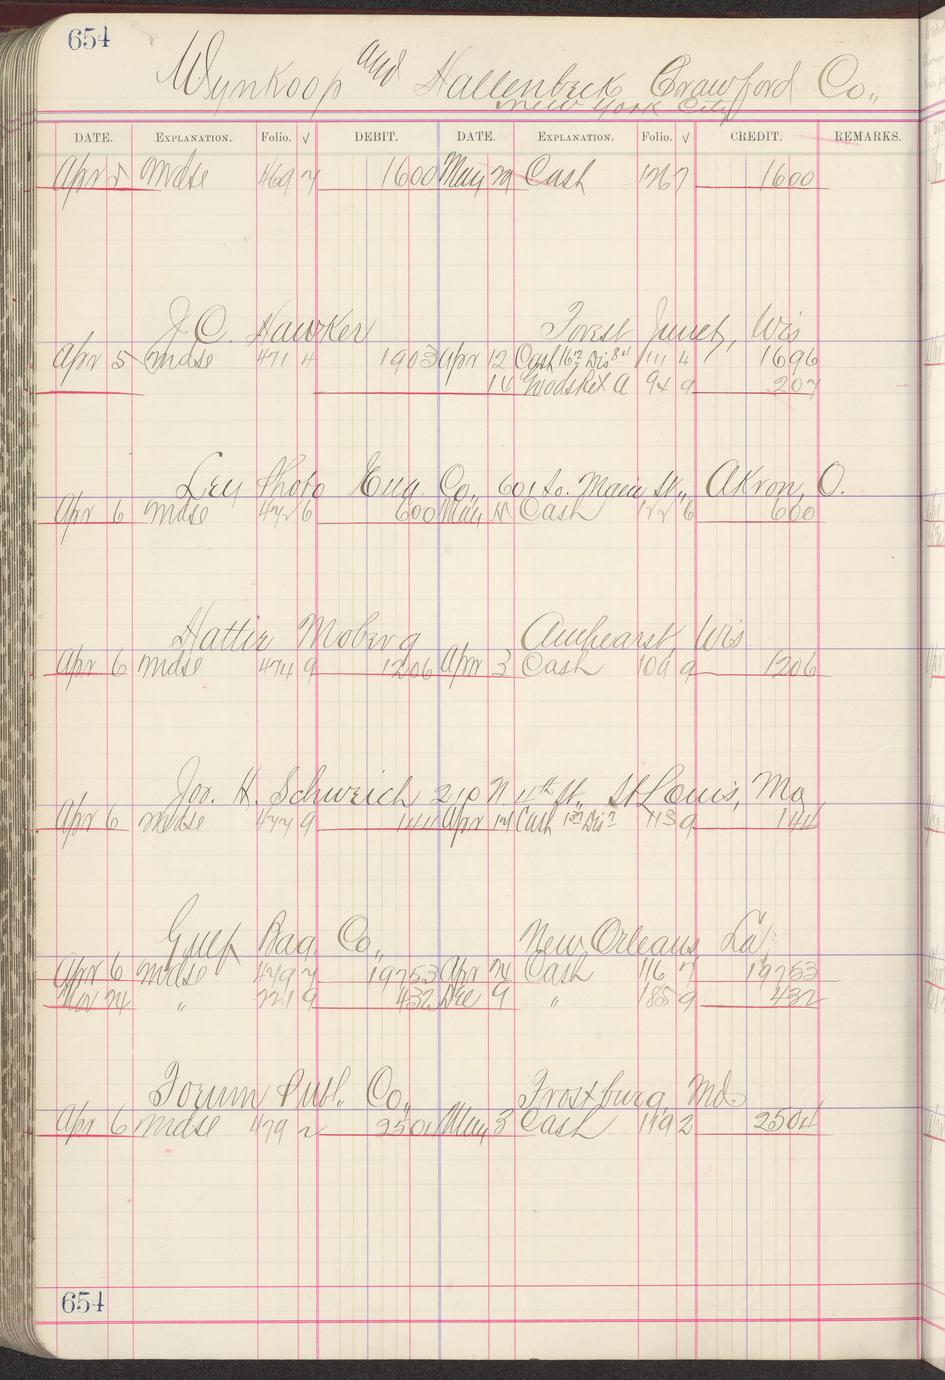 654
Wynkoop and Hallenbeck Crawford Co.,
New York City
DATE. EXPLANATION. Folio. √ DEBIT. DATE. EXPLANATION. Folio. √ CREDIT. REMARKS.
Apr 5 Mdse 469 7 1600 May 29 Cash 1267 1600
J. C. Hawker Forest Junct, Wis
Apr 5 Mdse 471 4 1903 Apr 12 Cash 16 12 Dis 84 111 4 1696
14 Goods Ret A 94 9 207
Ley Photo Eng. Co., 601 So. Main St., Akron, O.
Apr 6 Mdse 472 6 600 May Cash 122 6 600
Hattie Moberg Amhearst, Wis
Apr 6 Mdse 474 9 1206 Apr 3 Cash 109 9 1206
Jos. H. Schweich 210 N 4th St., St Louis, Mo
Apr 6 Mdse 477 9 144 Apr 17 Cash 137 Dis 7 113 9 144
Gulf Bag Co., New Orleans, La.
Apr 6 Mdse 479 7 19753 Apr 24 Cash 116 7 19753
Nov 24 " 221 9 432 Dec 9 " 185 9 432
Forum Publ. Co., Frostburg, Md.
Apr 6 Mdse 479 2 2504 May 3 Cash 119 2 2504
654